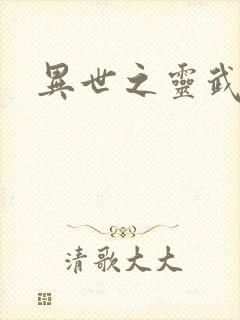 異世之靈武
清歌大大